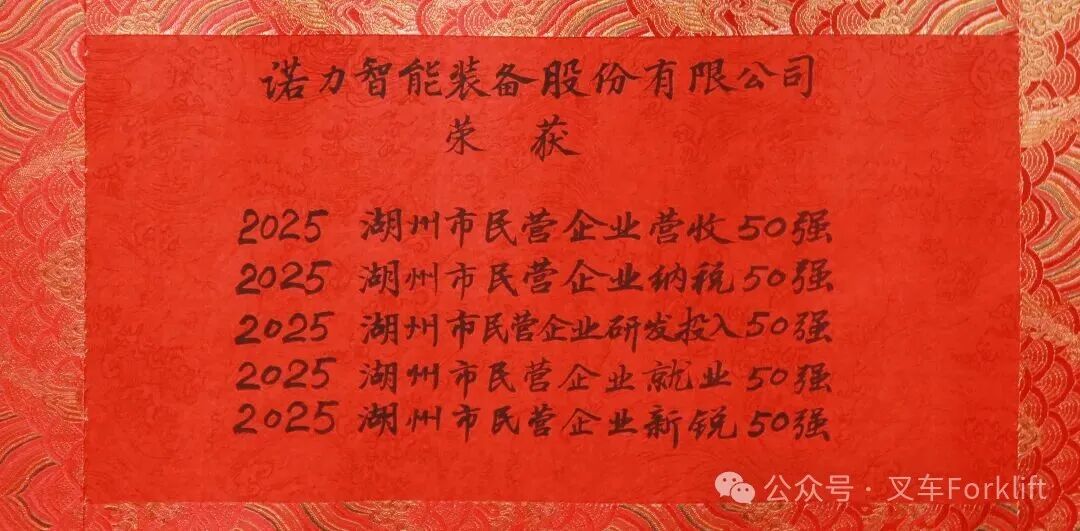 诺力智能装备股份有限公司
荣获
2025 湖州市民营企业营收50强
2025 湖州市民营企业纳税50强
2025 湖州市民营企业研发投入50强
2025 湖州市民营企业就业50强
2025 湖州市民营企业新锐50强
公众号·叉车Forklift